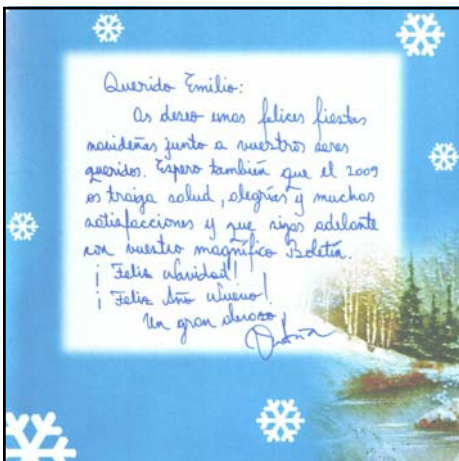 Querido Emilio:
Os deseo unas felices fiestas
navideñas junto a vuestros seres
queridos. Espero también que el 2009
os traiga salud, alegrías y muchas
satisfacciones y que sigas adelante
con vuestro magnífico Boletín.
¡Feliz Navidad!
¡Feliz Año Nuevo!
Un gran abrazo,